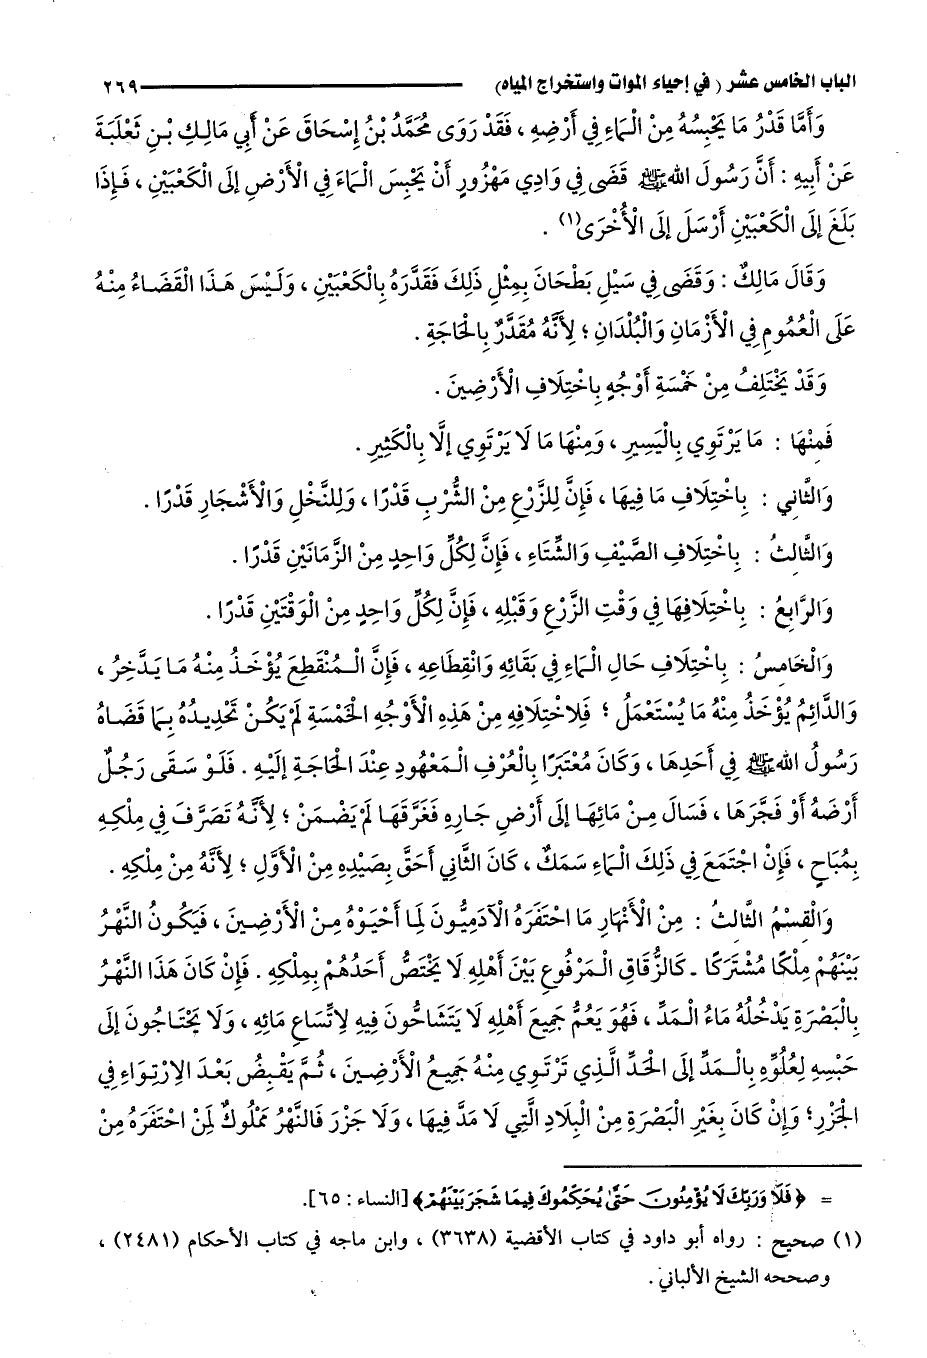 الباب الخامس عشر (في إحياء الموات واستخراج المياه) ٢٦٩
وَأَمَّا قَدْرُ مَا يَحْبِسُهُ مِنْ الْمَاءِ فِي أَرْضِهِ ، فَقَدْ رَوَى مُحَمَّدُ بْنُ إِسْحَاقَ عَنْ أَبِي مَالِكِ بْنِ ثَعْلَبَةَ
عَنْ أَبِيهِ : أَنَّ رَسُولَ اللهِ ﷺ قَضَى فِي وَادِي مَهْزُورٍ أَنْ يَحْبِسَ الْمَاءَ فِي الْأَرْضِ إِلَى الْكَعْبَيْنِ ، فَإِذَا
بَلَغَ إِلَى الْكَعْبَيْنِ أَرْسَلَ إِلَى الْأُخْرَى(١) .
وَقَالَ مَالِكٌ : وَقَضَى فِي سَيْلِ بَطْحَانَ بِمِثْلِ ذَلِكَ فَقَدَّرَهُ بِالْكَعْبَيْنِ ، وَلَيْسَ هَذَا الْقَضَاءُ مِنْهُ
عَلَى الْعُمُومِ فِي الْأَزْمَانِ وَالْبُلْدَانِ ؛ لِأَنَّهُ مُقَدَّرٌ بِالْحَاجَةِ .
وَقَدْ يَخْتَلِفُ مِنْ خَمْسَةِ أَوْجُهٍ بِاخْتِلَافِ الْأَرْضِينَ .
فَمِنْهَا : مَا يَرْتَوِي بِالْيَسِيرِ ، وَمِنْهَا مَا لَا يَرْتَوِي إلَّا بِالْكَثِيرِ .
وَالثَّانِي : بِاخْتِلَافِ مَا فِيهَا ، فَإِنَّ لِلزَّرْعِ مِنْ الشُّرْبِ قَدْرًا ، وَلِلنَّخْلِ وَالْأَشْجَارِ قَدْرًا .
وَالثَّالِثُ : بِاخْتِلَافِ الصَّيْفِ وَالشِّتَاءِ ، فَإِنَّ لِكُلِّ وَاحِدٍ مِنْ الزَّمَانَيْنِ قَدْرًا .
وَالرَّابِعُ : بِاخْتِلَافِهَا فِي وَقْتِ الزَّرْعِ وَقَبْلِهِ ، فَإِنَّ لِكُلِّ وَاحِدٍ مِنْ الْوَقْتَيْنِ قَدْرًا .
وَالْخَامِسُ : بِاخْتِلَافِ حَالِ الْمَاءِ فِي بَقَائِهِ وَانْقِطَاعِهِ ، فَإِنَّ الْمُنْقَطِعَ يُؤْخَذُ مِنْهُ مَا يَدَّخِرُ ،
وَالدَّائِمُ يُؤْخَذُ مِنْهُ مَا يُسْتَعْمَلُ ؛ فَلِاخْتِلَافِهِ مِنْ هَذِهِ الْأَوْجُهِ الْخَمْسَةِ لَمْ يَكُنْ تَحْدِيدُهُ بِمَا قَضَاهُ
رَسُولُ اللهِ ﷺ فِي أَحَدِهَا ، وَكَانَ مُعْتَبَرًا بِالْعُرْفِ الْمَعْهُودِ عِنْدَ الْحَاجَةِ إلَيْهِ . فَلَوْ سَقَى رَجُلٌ
أَرْضَهُ أَوْ فَجَّرَهَا ، فَسَالَ مِنْ مَائِهَا إِلَى أَرْضِ جَارِهِ فَغَرَّقَهَا لَمْ يَضْمَنْ ؛ لِأَنَّهُ تَصَرَّفَ فِي مِلْكِهِ
بِمُبَاحٍ ، فَإِنْ اجْتَمَعَ فِي ذَلِكَ الْمَاءِ سَمَكٌ ، كَانَ الثَّانِي أَحَقَّ بِصَيْدِهِ مِنْ الْأَوَّلِ ؛ لِأَنَّهُ مِنْ مِلْكِهِ .
وَالْقِسْمُ الثَّالِثُ : مِنْ الْأَنْهَارِ مَا احْتَفَرَهُ الْآدَمِيُّونَ لِمَا أَحْيَوْهُ مِنْ الْأَرْضِينَ ، فَيَكُونُ النَّهْرُ
بَيْنَهُمْ مِلْكًا مُشْتَرَكًا ـ كَالزُّقَاقِ الْمَرْفُوعِ بَيْنَ أَهْلِهِ لَا يَخْتَصُّ أَحَدُهُمْ بِمِلْكِهِ . فَإِنْ كَانَ هَذَا النَّهْرُ
بِالْبَصْرَةِ يَدْخُلُهُ مَاءُ الْمَدِّ ، فَهُوَ يَعُمُّ جَمِيعَ أَهْلِهِ لَا يَتَشَاحُّونَ فِيهِ لِاتِّسَاعِ مَائِهِ ، وَلَا يَحْتَاجُونَ إِلَى
حَبْسِهِ لِعُلُوِّهِ بِالْمَدِّ إِلَى الْحَدِّ الَّذِي تَرْتَوِي مِنْهُ جَمِيعُ الْأَرْضِينَ ، ثُمَّ يَقْبِضُ بَعْدَ الِارْتِوَاءِ فِي
الْجَزْرِ؛ وَإِنْ كَانَ بِغَيْرِ الْبَصْرَةِ مِنْ الْبِلَادِ الَّتِي لَا مَدَّ فِيهَا ، وَلَا جَزْرَ فَالنَّهْرُ مَمْلُوكٌ لِمَنْ احْتَفَرَهُ مِنْ
= ﴿فَلَا وَرَبِّكَ لَا يُؤْمِنُونَ حَتَّىٰ يُحَكِّمُوكَ فِيمَا شَجَرَ بَيْنَهُمْ﴾ [النساء : ٦٥].
(١) صحيح : رواه أبو داود في كتاب الأقضية (٣٦٣٨) ، وابن ماجه في كتاب الأحكام (٢٤٨١) ،
وصححه الشيخ الألباني .